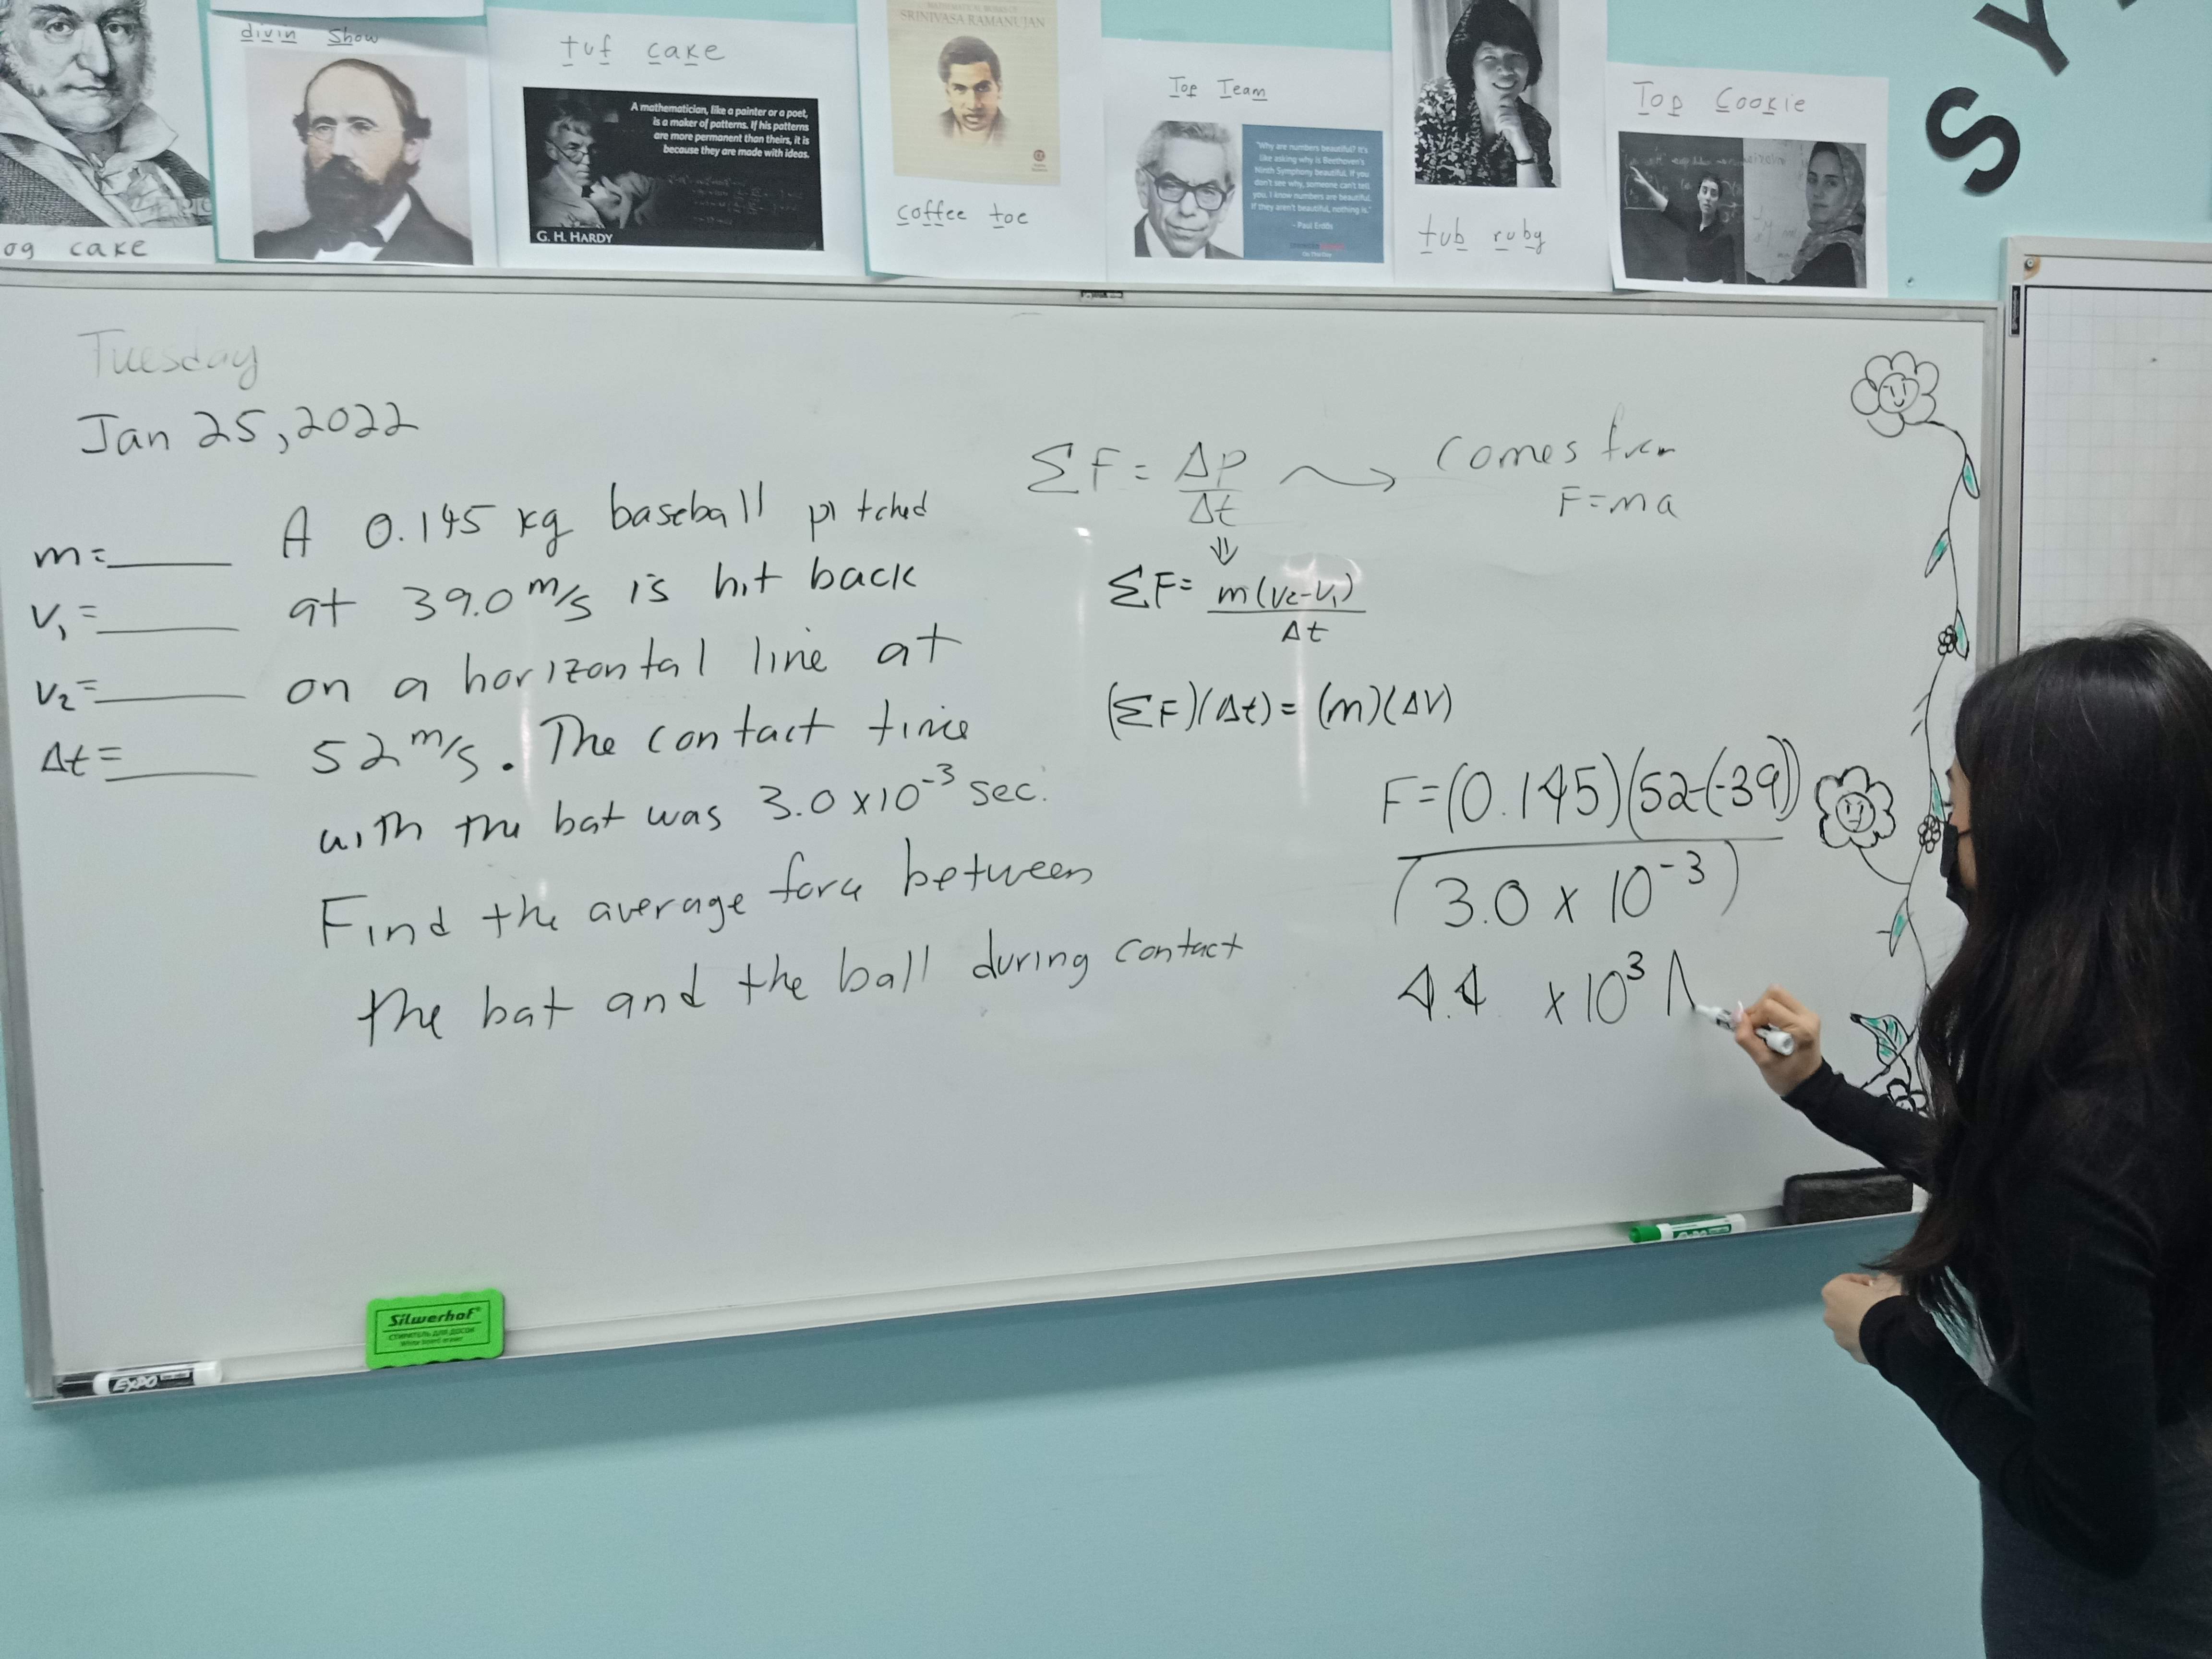 MATHEMATICAL WORKS OF
SRINIVASA RAMANUJAN
divin show
tuf cake
A mathematician, like a painter or a poet,
is a maker of patterns. If his patterns
are more permanent than theirs, it is
because they are made with ideas.
G. H. HARDY
og cake
coffee toe
Top Team
"Why are numbers beautiful? It's
like asking why is Beethoven's
Ninth Symphony beautiful. If you
don't see why, someone can't tell
you. I know numbers are beautiful.
If they aren't beautiful, nothing is."
- Paul Erdős
On This Day
tub ruby
Top Cookie
S Y
Tuesday
Jan 25, 2022
m=____
V₁=____
V₂=____
Δt=____
A 0.145 kg baseball pitched
at 39.0 m/s is hit back
on a horizontal line at
52 m/s. The contact time
with the bat was 3.0 x10⁻³ sec.
Find the average force between
the bat and the ball during contact
ΣF = ΔP/Δt → comes from
F=ma
⇓
ΣF= m(V₂-V₁)/Δt
(ΣF)(Δt) = (m)(ΔV)
F=(0.145)(52-(-39))
(3.0 x 10⁻³)
4.4 x10³ N
Silwerhof
СТИРАТЕЛЬ ДЛЯ ДОСОК
White board eraser
EXPO
EXPO